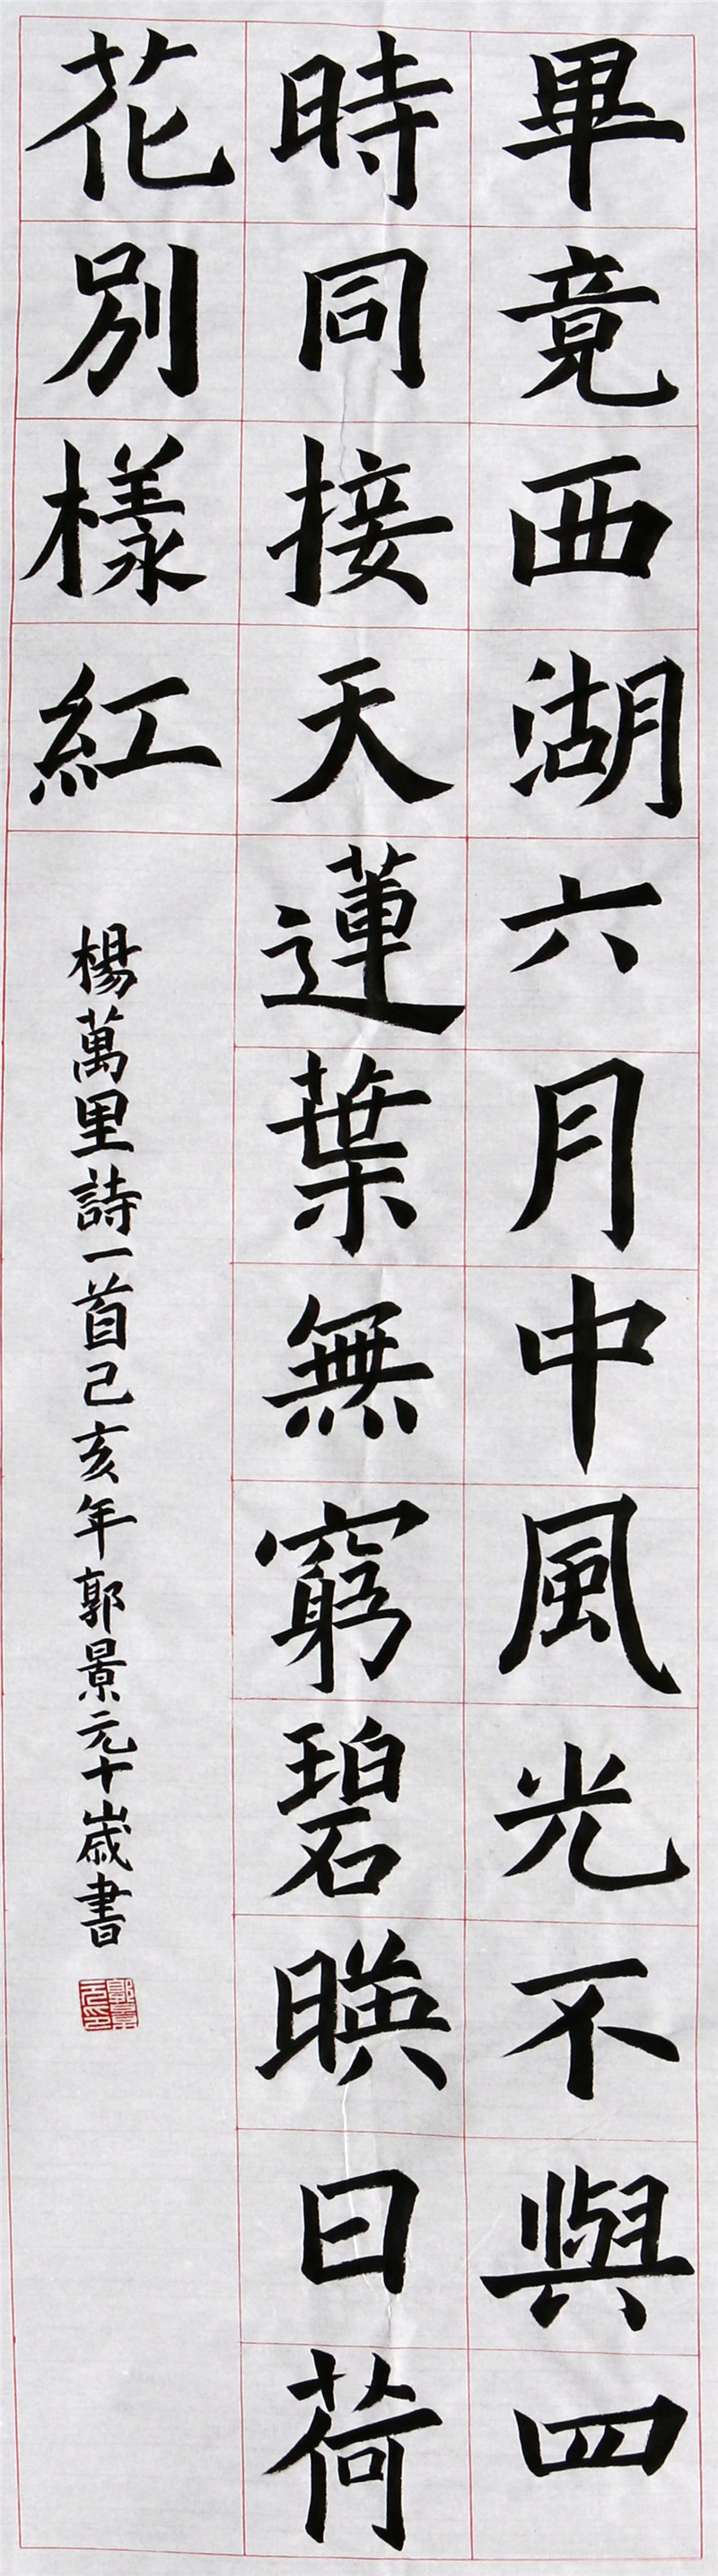 畢竟西湖六月中風光不與四
時同接天蓮葉無窮碧暎日荷
花別樣紅
楊萬里詩一首己亥年郭景元十歲書
郭景元印